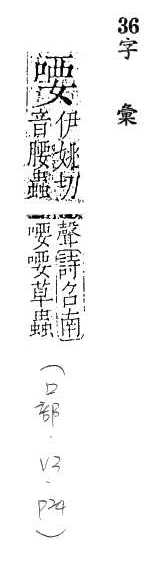 36字彙
喓
伊姚切
音腰蟲
聲詩召南
喓喓草蟲
(口部.V3.P24)